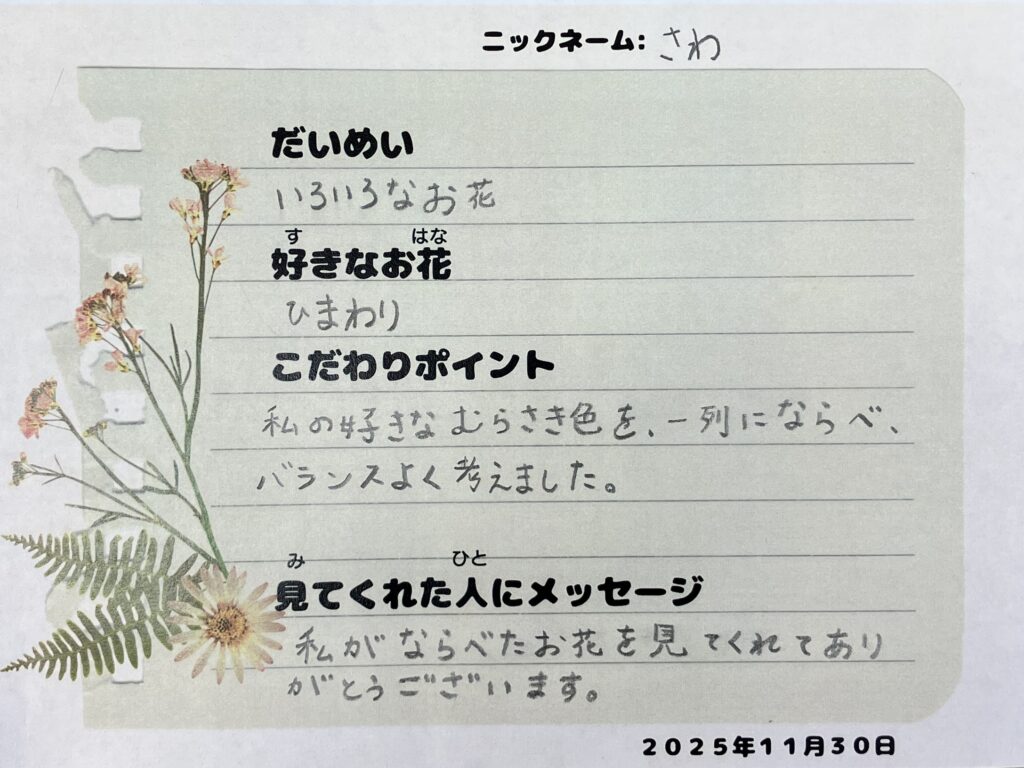 ニックネーム: さわ
だいめい
いろいろなお花
好きなお花
ひまわり
こだわりポイント
私の好きなむらさき色を、一列にならべ、
バランスよく考えました。
見てくれた人にメッセージ
私がならべたお花を見てくれてあり
がとうございます。
2025年11月30日